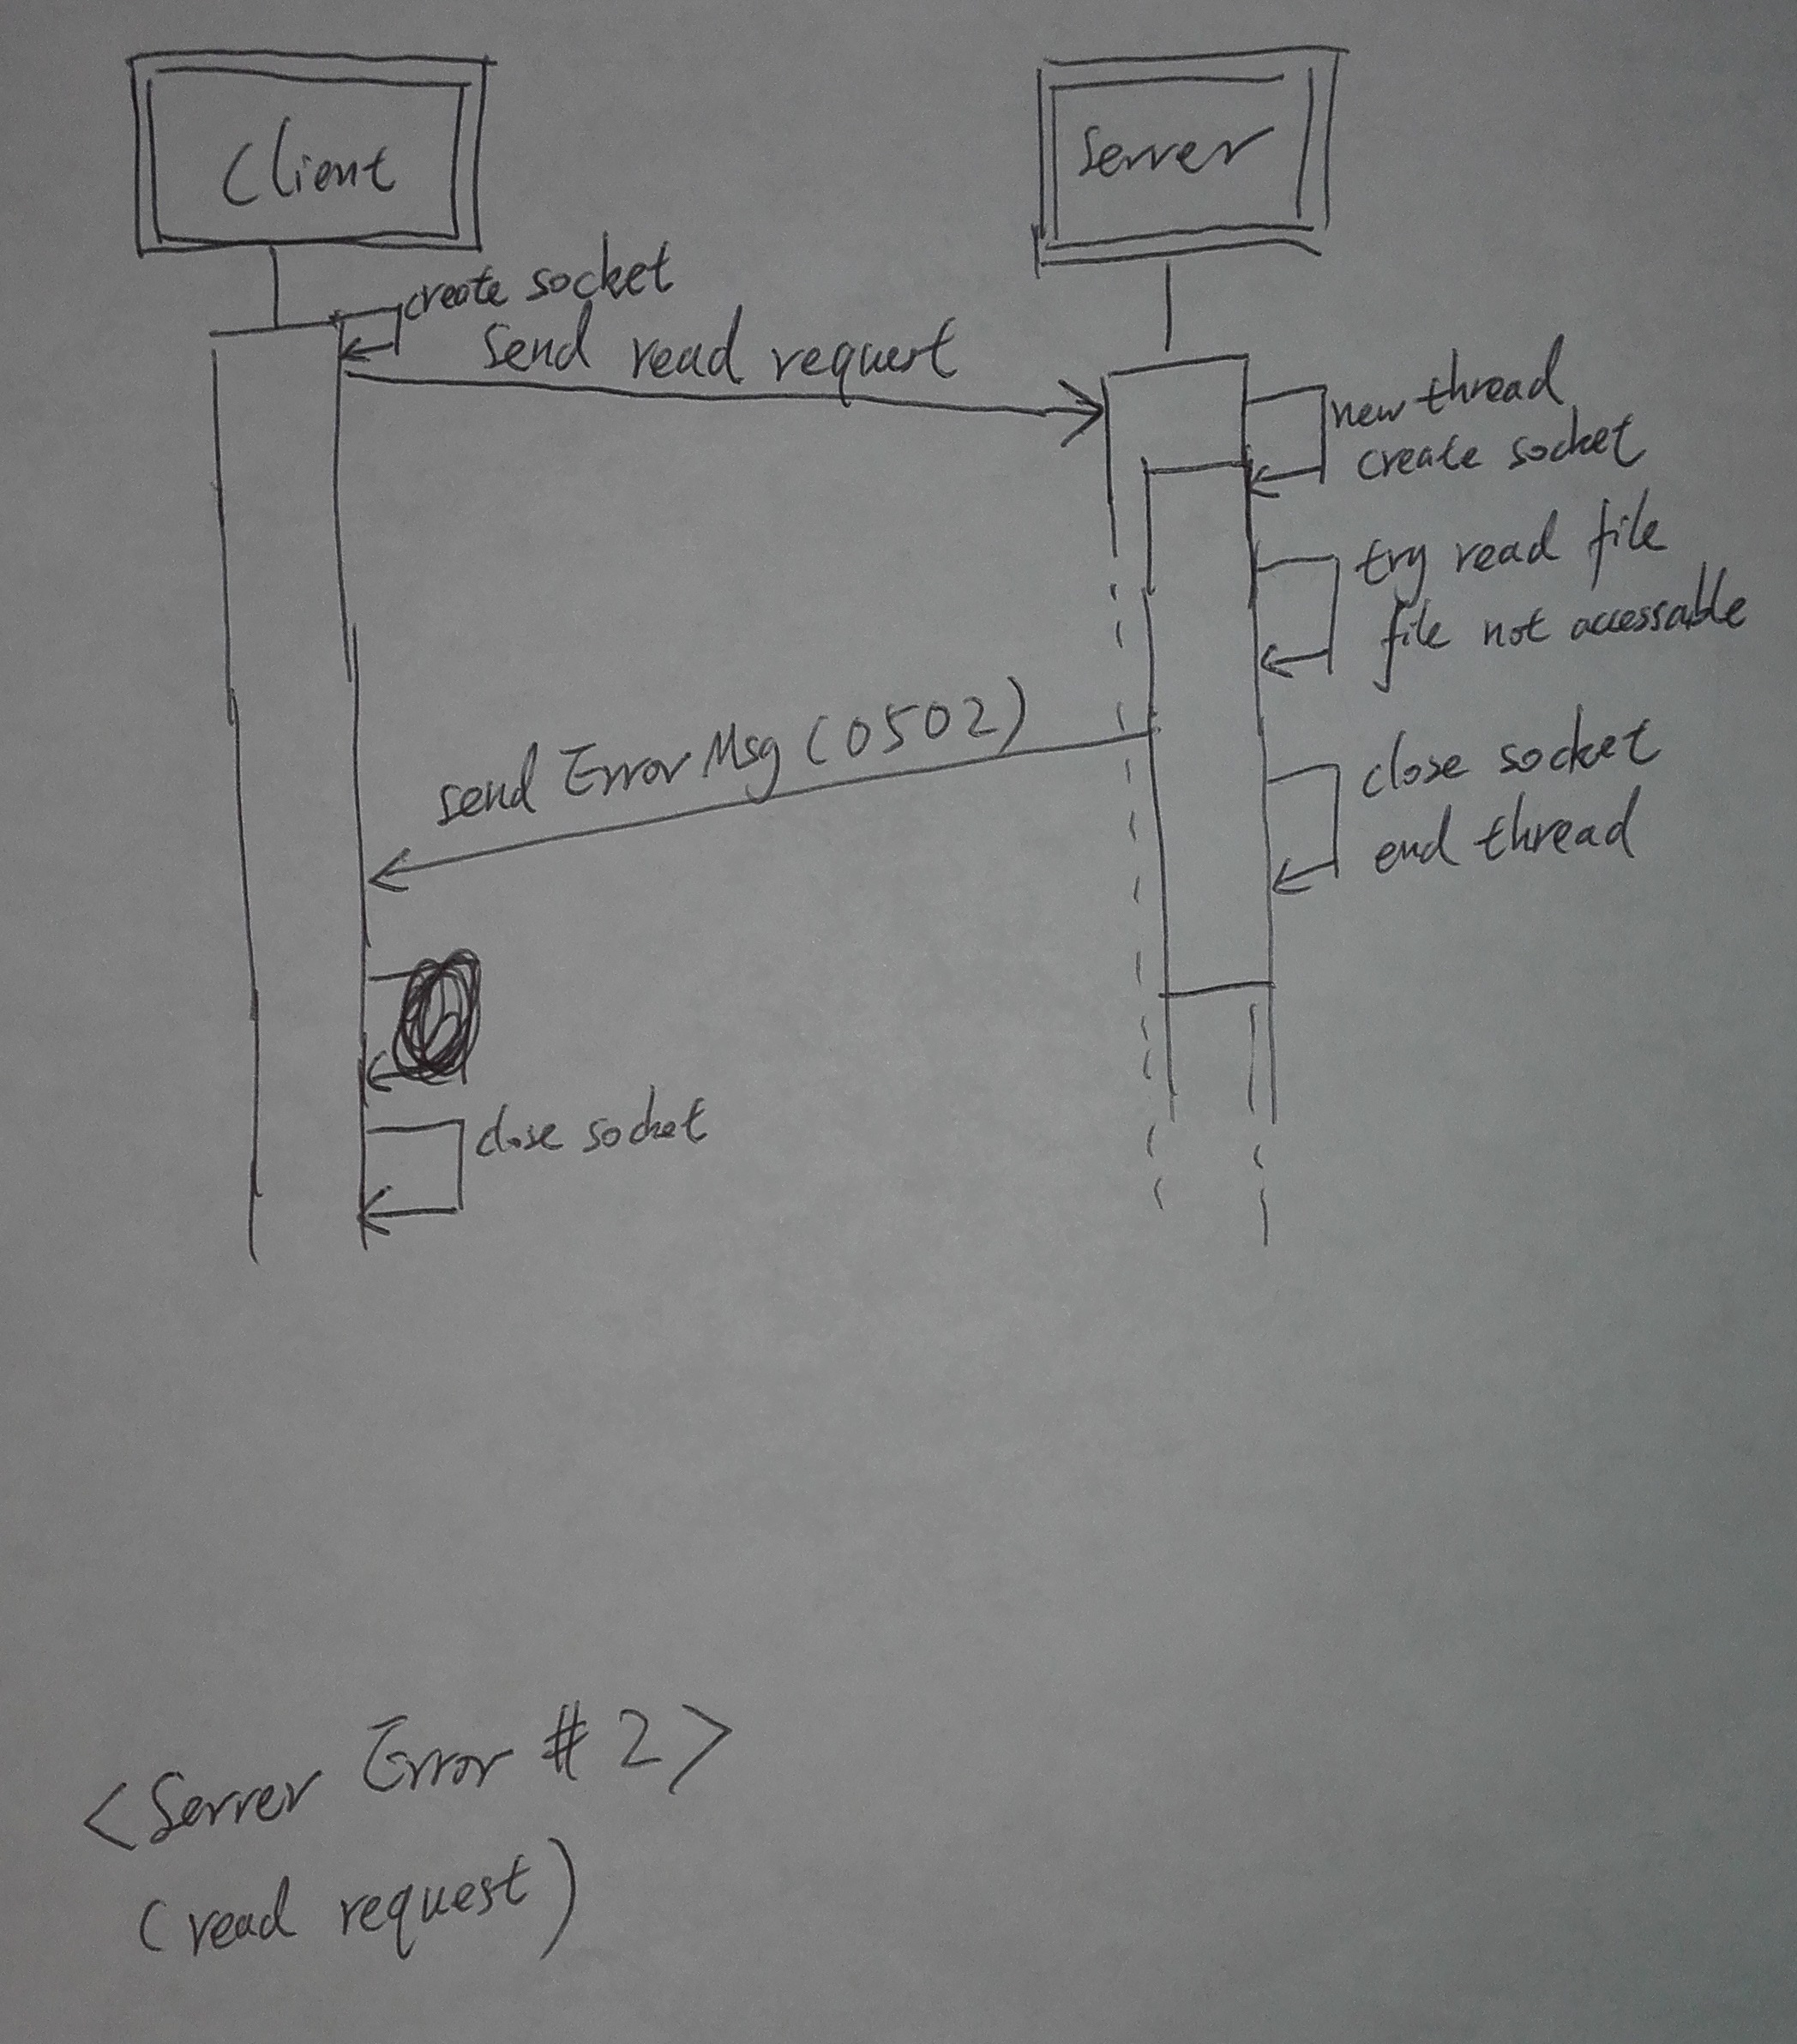 Client
Server
create socket
Send read request
new thread
create socket
try read file
file not accessable
send Error Msg (0502)
close socket
end thread
close socket
<Server Error #2>
(read request)